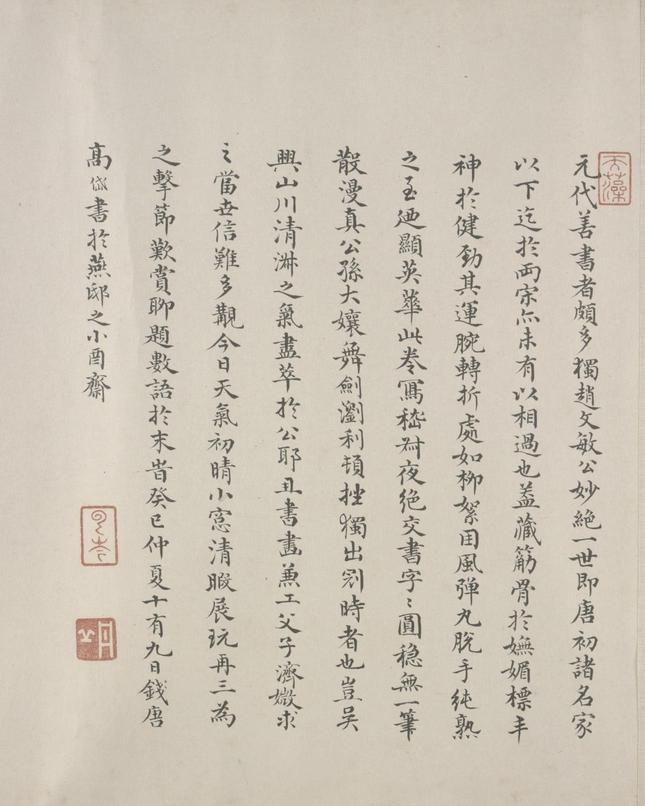 天藻
元代善書者頗多獨趙文敏公妙絕一世即唐初諸名家
以下迄於兩宋亦未有以相過也葢藏筋骨於嫵媚標丰
神於健勁其運腕轉折處如柳絮因風彈丸脫手純熟
之至迺顯英華此卷寫嵇叔夜絕交書字〻圓穩無一筆
散漫真公孫大孃舞劍瀏利頓挫獨出冠時者也豈吴
興山川清淑之氣盡萃於公耶且書畫兼工父子濟媺求
之當世信難多覯今日天氣初晴小窻清暇展玩再三為
之擊節歎賞聊題數語於末旹癸巳仲夏十有九日錢唐
高岱書於燕邸之小酉齋